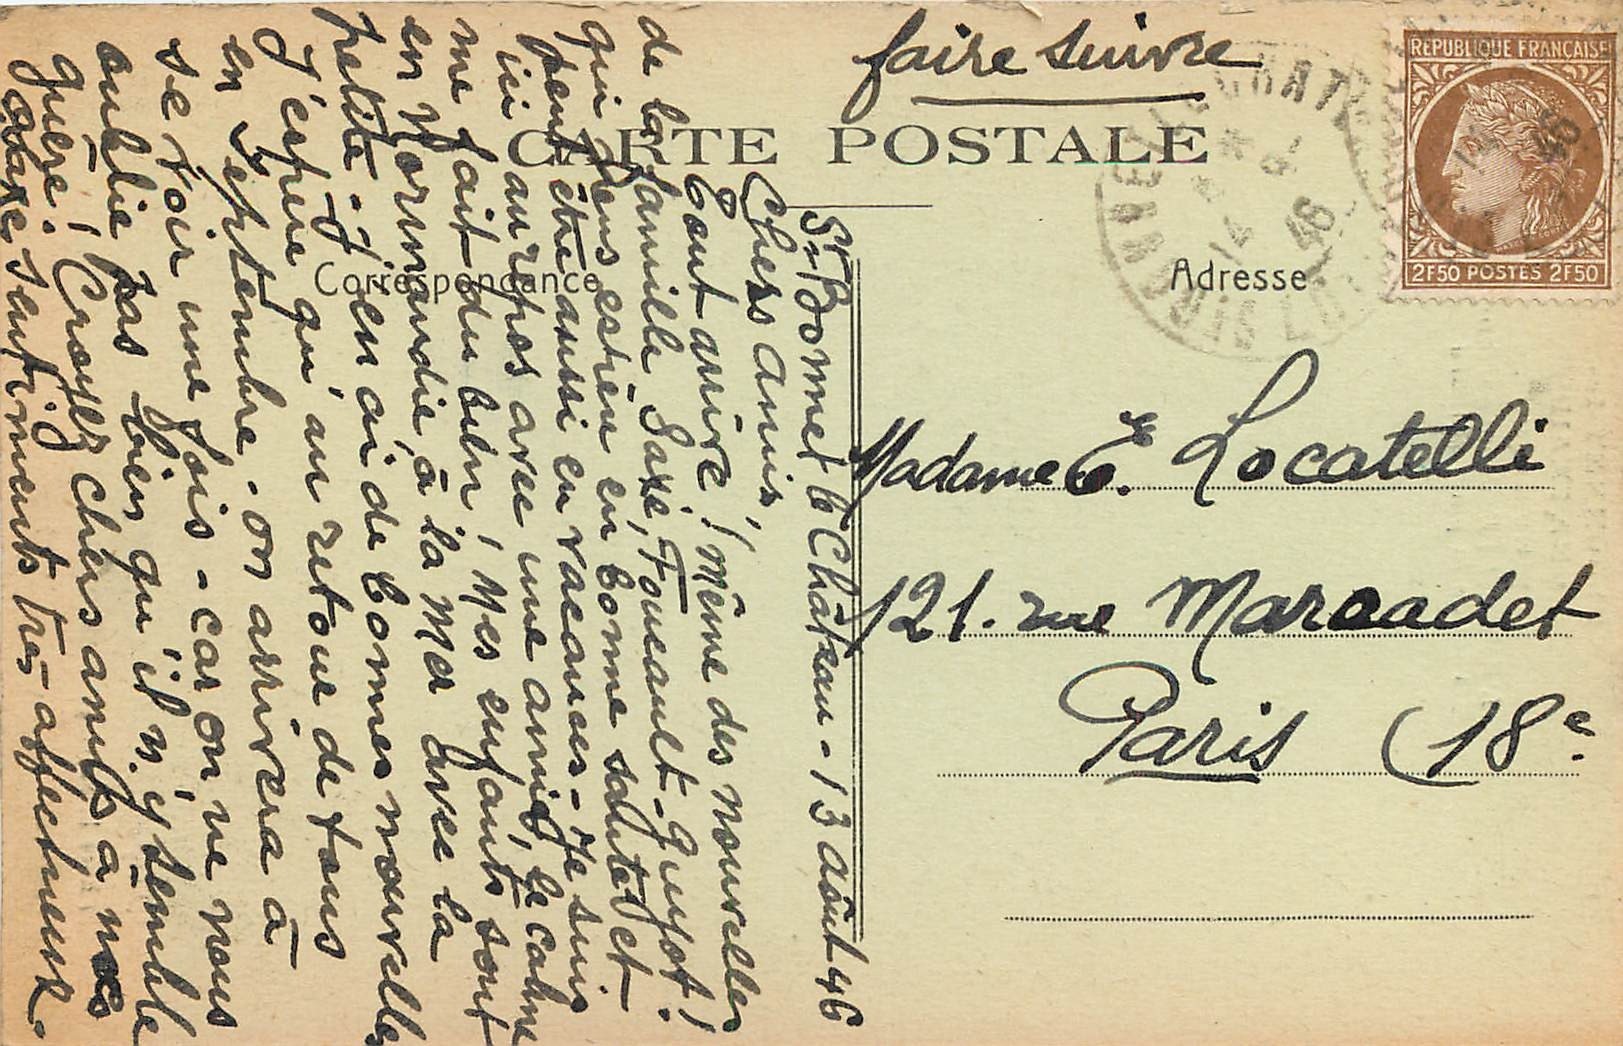 faire suivre
RÉPUBLIQUE FRANÇAISE
2F50 POSTES 2F50
CARTE POSTALE
Correspondance
Adresse
St Bonnet le Château - 13 août 46
Chers amis,
tout arrive ! même des nouvelles
de la famille Saxe, Foucault-Guyot !
qui
peut être aussi en vacances - Je suis
ici au repos avec une amie, le calme
me fait du bien, Mes enfants sont
en Normandie, à la Mer avec la
petite - j'en ai de bonnes nouvelles
J'espère qu'au retour de tous
en Septembre - on arrivera à
se voir une fois - car on ne nous
oublie pas bien qu'il n'y semble
guère ! Croyez chers amis à nos
sentiments très affectueux -
Madame E. Locatelli
121. rue Marcadet
Paris (18e.